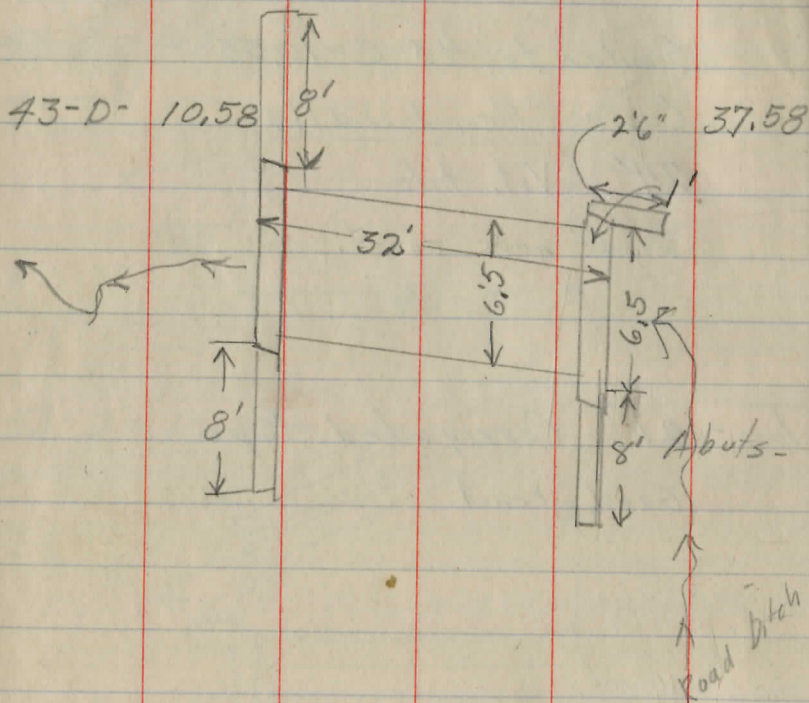 8'
43-D- 10.58
2'6" 37.58
1'
32'
6.5
6.5
8'
8' Abuts-
Road Ditch